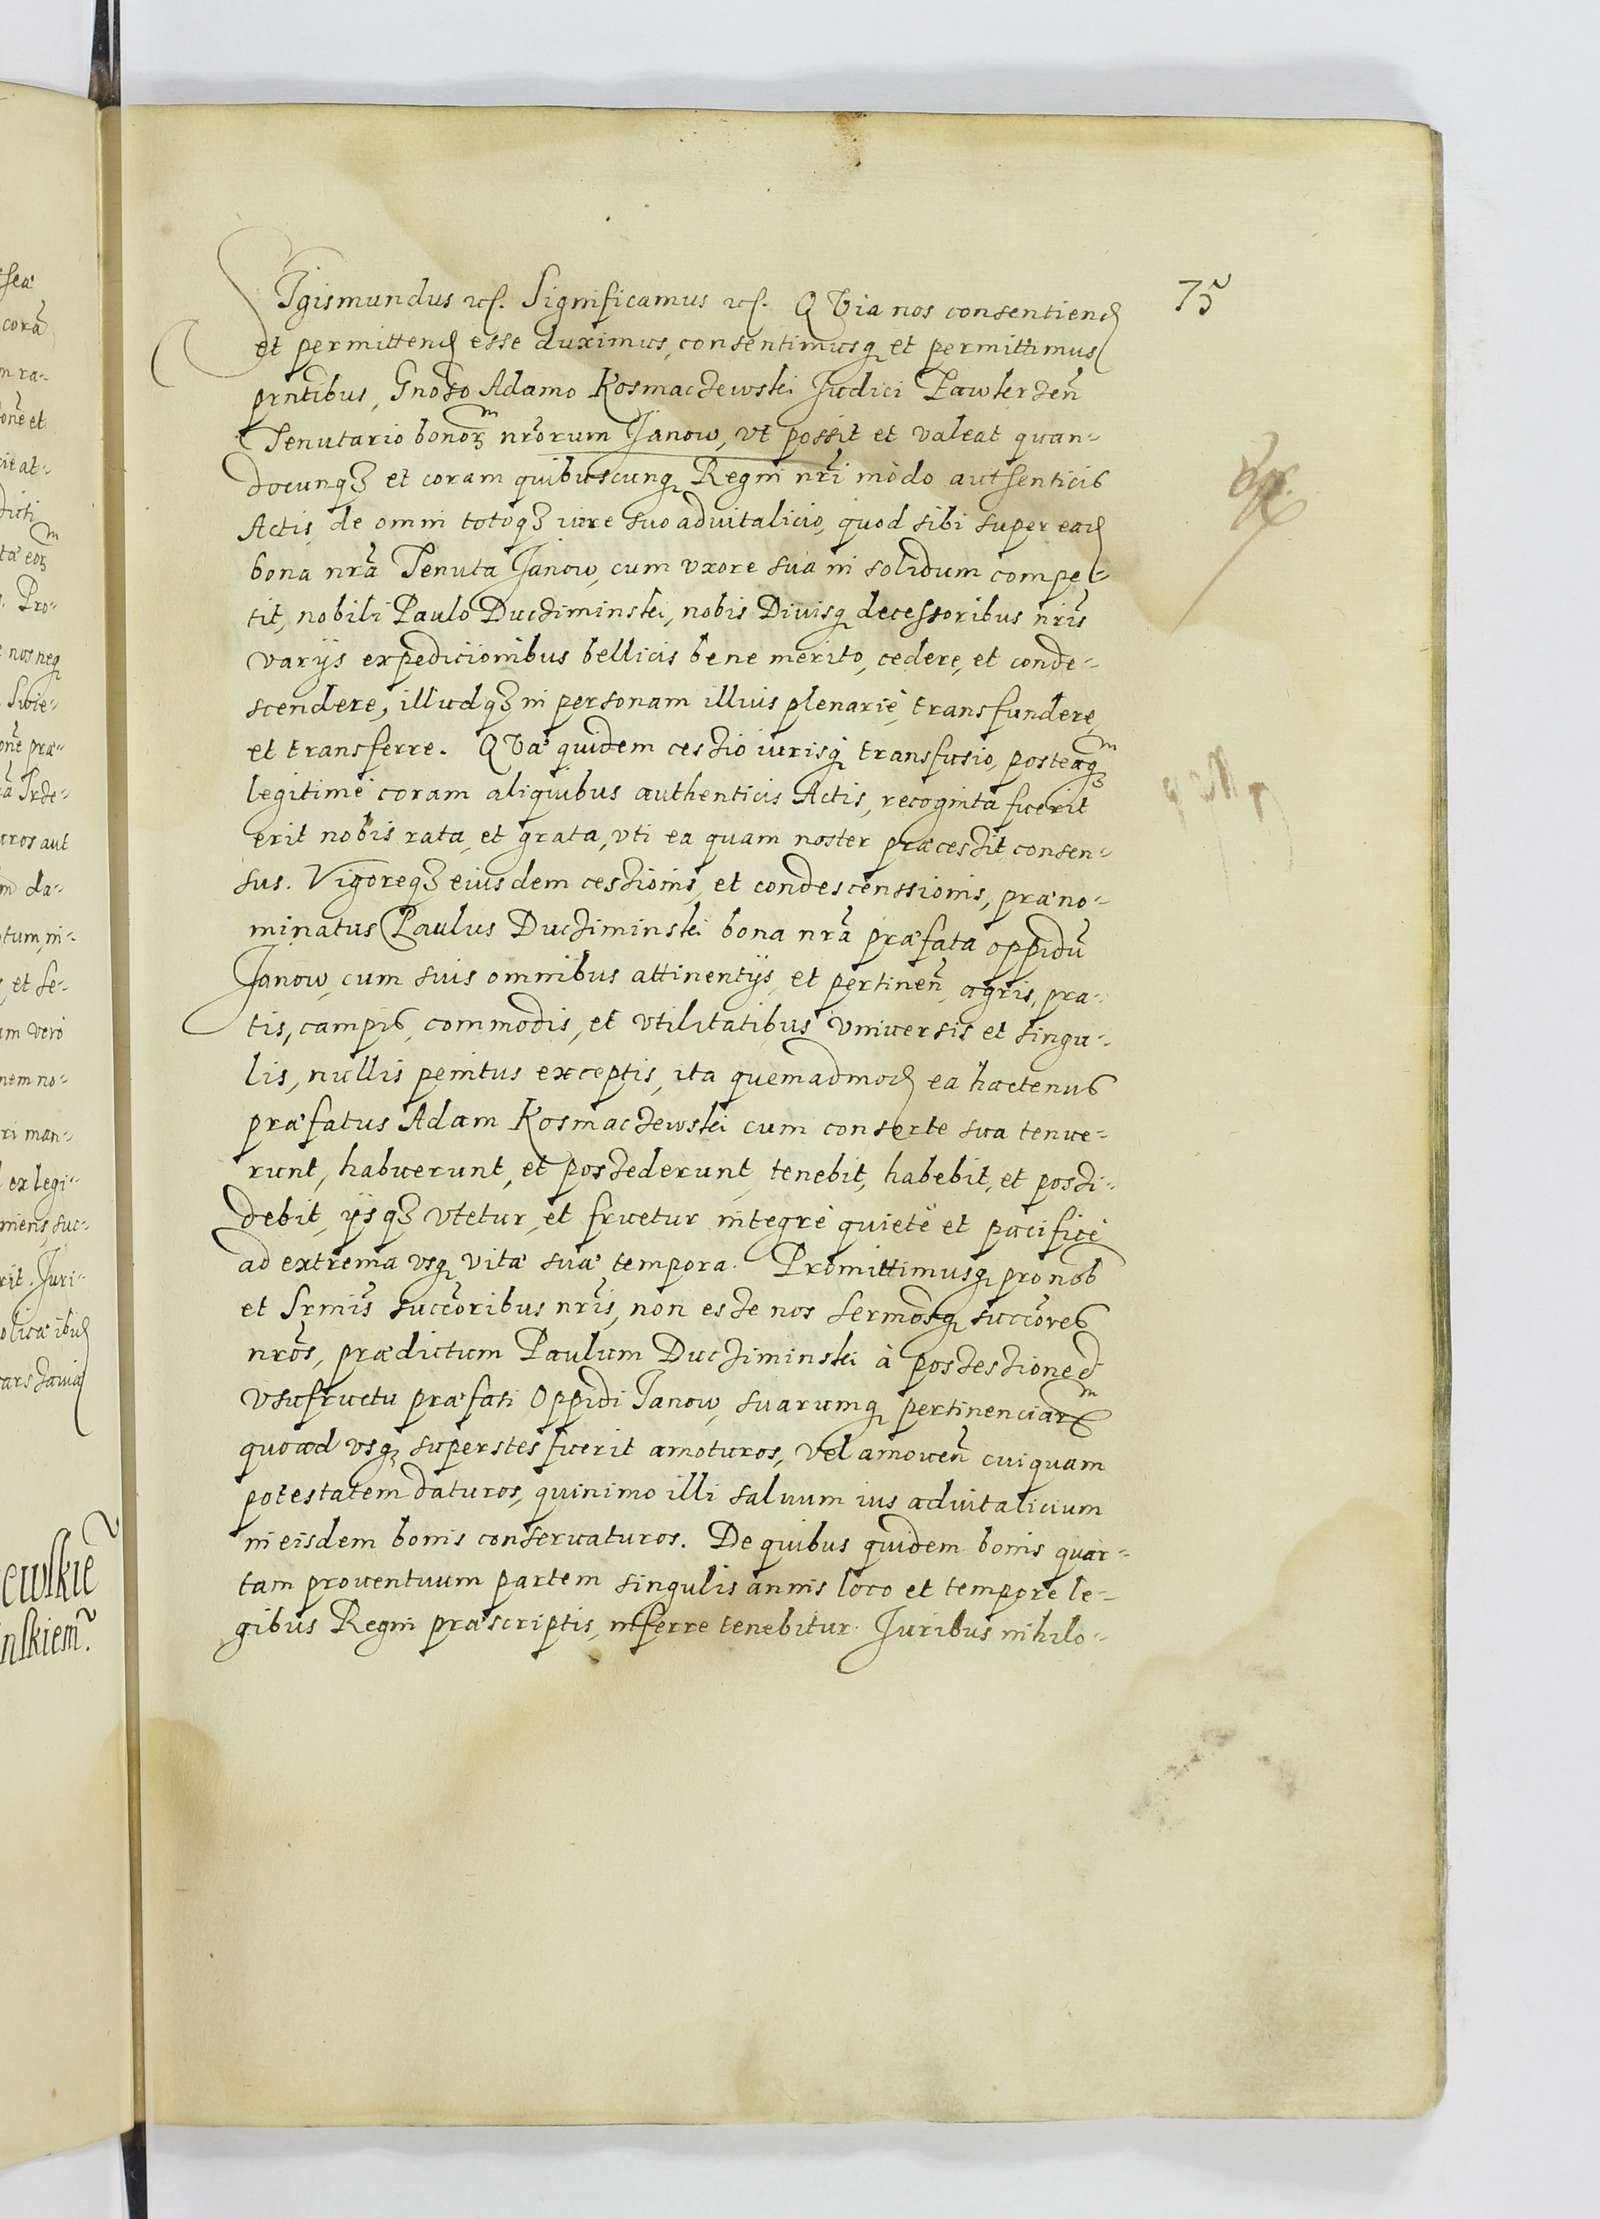 75
Sigismundus etc. Significamus etc. QVia nos consentiend
et permittend esse duximus, consentimusq et permittimus
prntibus, Gnoso Adamo Kosmaczewski Judici Zawkrzen̄
Tenutario bonor nr̄orum Janow, vt possit et valeat quan-
docunq3 et coram quibuscunq Regni nr̄i modo autsenticis
Actis de omni totoq3 iure suo aduitalicio, quod sibi super ead
bona nr̄a Tenuta Janow, cum vxore sua in solidum compe-
tit, nobili Paulo Ducziminski, nobis Diuisq decessoribus nr̄is
varijs expedicionibus bellicis bene merito, cedere, et conde-
scendere, illudq3 in personam illius plenariè transfundere,
et transferre. QVæ quidem cessio iurisq transfusio, posteaq3m
legitimè coram aliquibus authenticis Actis, recognita fuerit
erit nobis rata, et grata, vti ea quam noster præcessit consen-
sus. Vigoreq3 eiusdem cessionis, et condescenssionis, præno-
minatus Paulus Ducziminski bona nr̄a præfata oppidū
Janow, cum suis omnibus attinentijs, et pertinen̄, agris, pra-
tis, campis, commodis, et vtilitatibus vniuersis et singu-
lis, nullis penitus exceptis, ita quemadmod ea hactenus
præfatus Adam Kosmaczewski cum consorte sua tenue-
runt, habuerunt, et possederunt, tenebit, habebit, et possi-
debit, ijsq3 vtetur, et fruetur integrè quietè et pacificè
ad extrema vsq vitæ suæ tempora. Promittimusq pro nob
et Srmis̄ succ̄oribus nr̄is, non esse nos Sermosq succ̄ores
nr̄os, prædictum Paulum Ducziminski à possessione et
Vsufructu præfati Oppidi Janow, suarumq pertinenciar
quoad vsq superstes fuerit amoturos, vel amouen̄ cuiquam
potestatem daturos, quinimo illi saluum ius aduitalicium
in eisdem bonis conseruaturos. De quibus quidem bonis quar-
tam prouentuum partem singulis annis loco et tempore le-
gibus Regni præscriptis, inferre tenebitur. Juribus nihilo-